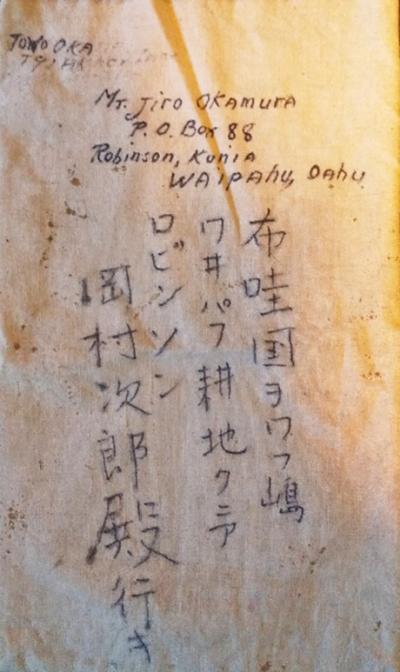 TOYO OKA
Mr. Jiro Okamura
P.O. Box 88
Robinson, Kunia
Waipahu, Oahu
布哇国ヲワフ嶋
ワヰパフ耕地クニア
ロビンソン
岡村次郎殿行き